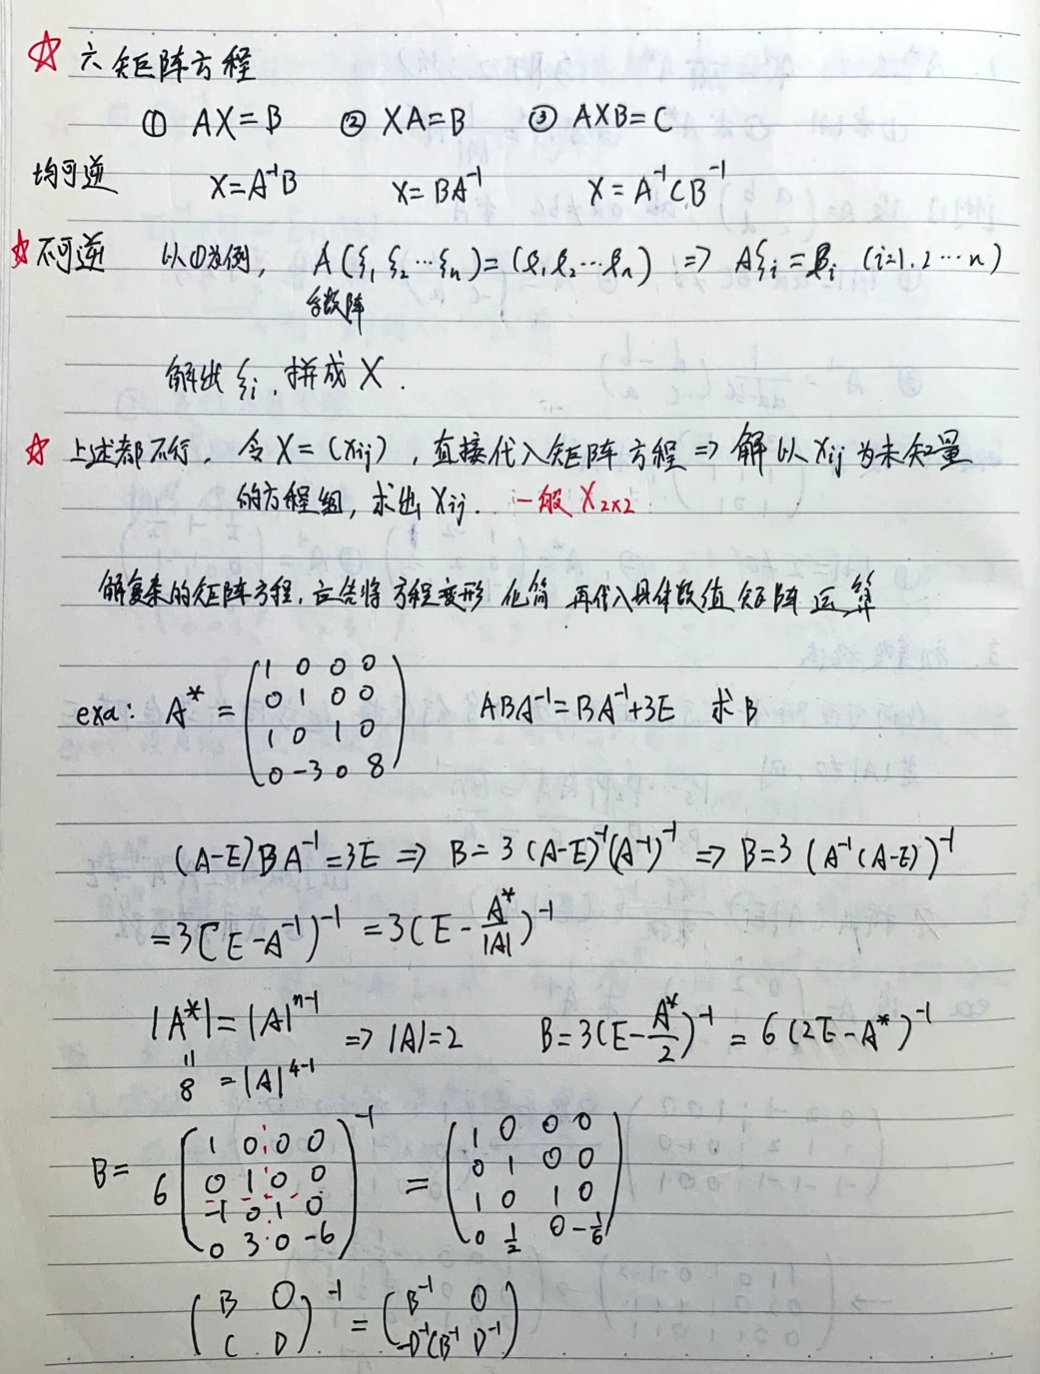 ☆ 六 矩阵方程
① AX=B ② XA=B ③ AXB=C
均可逆 X=A⁻¹B X=BA⁻¹ X=A⁻¹CB⁻¹
☆不可逆 以①为例, A(ξ₁ ξ₂ ⋯ ξₙ)=(β₁ β₂ ⋯ βₙ) ⇒ Aξᵢ=βᵢ (i=1.2⋯n)
系数阵
解出 ξᵢ, 拼成 X.
☆ 上述都不行, 令 X=(xij), 直接代入矩阵方程 ⇒ 解以 xij 为未知量
的方程组, 求出 xij. 一般 X₂ₓ₂
解复杂的矩阵方程, 应先将方程变形 化简 再代入具体数值矩阵运算
exa: A* = (1 0 0 0
0 1 0 0
1 0 1 0
0 -3 0 8) ABA⁻¹=BA⁻¹+3E 求B
(A-E)BA⁻¹=3E ⇒ B=3(A-E)⁻¹(A⁻¹)⁻¹ ⇒ B=3(A⁻¹(A-E))⁻¹
=3(E-A⁻¹)⁻¹ =3(E-A*/|A|)⁻¹
|A*|=|A|ⁿ⁻¹ ⇒ |A|=2 B=3(E-A*/2)⁻¹ = 6(2E-A*)⁻¹
=
8 =|A|⁴⁻¹
B= 6 [1 0 0 0
0 1 0 0
-1 0 1 0
0 3 0 -6]⁻¹ = (1 0 0 0
0 1 0 0
1 0 1 0
0 1/2 0 -1/6)
(B O
C D)⁻¹ = (B⁻¹ O
-D⁻¹CB⁻¹ D⁻¹)